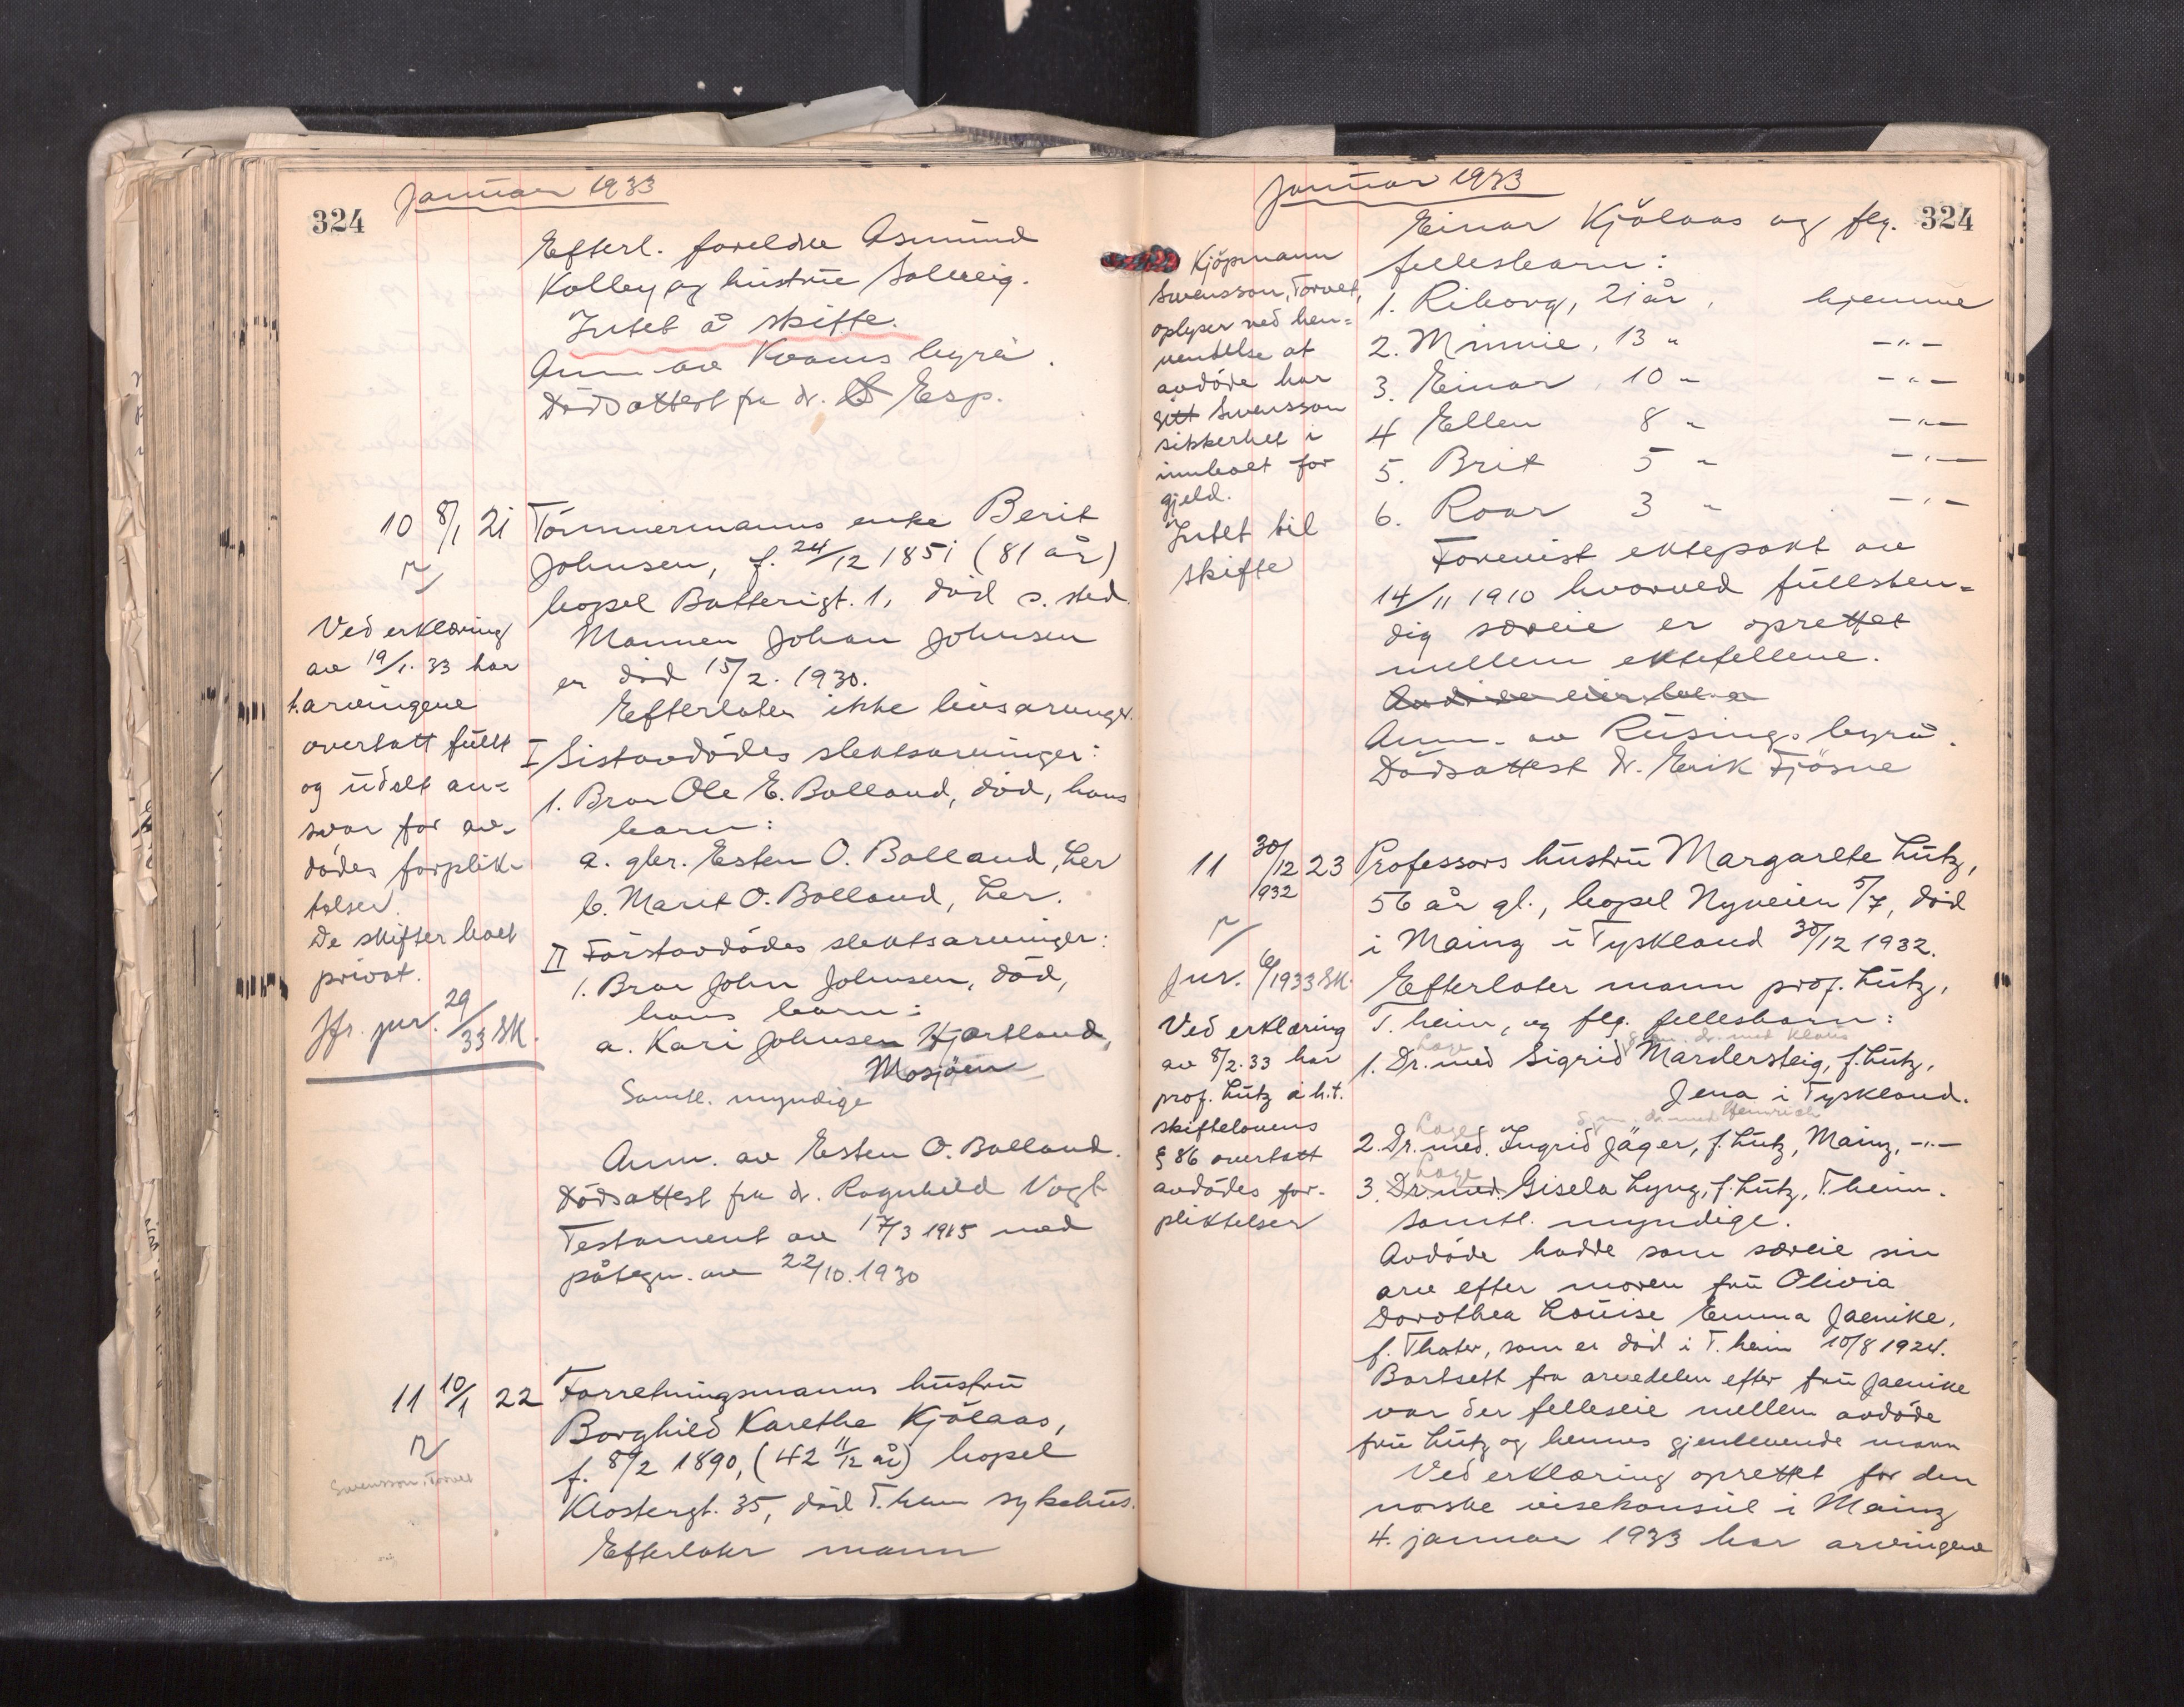 324
Januar 1933
Efterl. foreldre Asmund
Kolley og hustru Solveig.
Intet å skifte.
Anm. av Kvams byrå.
Dödsattest fra dr. Esp.
10 8/1 21 Tömmermanns enke Berit
Johnsen, f. 24/12 1851 (81 år)
bopel Batterigt. 1, död s. sted.
Mannen Johan Johnsen
er död 15/2. 1930.
Efterlater ikke livsarvinger.
I Sistavdödes slektsarvinger:
1. Bror Ole E. Bolland, död, hans
barn:
a. gbr. Esten O. Bolland, her
b. Marit O. Bolland, her.
II Förstavdödes slektsarvinger:
1. Bror John Johnsen, död,
hans barn:
a. Kari Johnsen Hjortland,
Mosjöen
Samtl. myndige
Anm. av Esten O. Bolland.
Dödsattest fra dr. Ragnhild Vogt
Testament av 17/3 1915 med
påtegn. av 22/10. 1930
Ved erklæring
av 19/1. 33 har
arvingene
overtatt fullt
og udelt an=
svar for av-
dödes forplik-
telser.
De skifter boet
privat.
Jfr. jur. 29/33 SK.
11 10/1 22 Forretningsmanns hustru
Borghild Karethe Kjölaas,
f. 8/2 1890, (42 11/12 år) bopel
Klostergt. 35, död T.hem sykehus.
Efterlater mann
Svensson, Torvet
Januar 1933
324
Einar Kjölaas og flg.
fellesbarn:
1. Riborg, 21 år, hjemme
2. Minnie, 13 " -"-
3. Einar, 10 " -"-
4 Ellen 8 " -"-
5. Brit 5 " -"-
6. Roar 3 " -"-
Forevist ektepakt av
14/11 1910 hvorved fullsten=
dig særeie er oprettet
mellem ektefellene.
Anm. av Rüsings byrå.
Dödsattest dr. Erik Fjösne
Kjöpmann
Svensson, Torvet,
oplyser ved hen=
vendelse at
avdöde har
gitt Svensson
sikkerhet i
innboet for
gjeld.
Intet til
skifte
11 30/12 1932 23 Professors hustru Margarete Lutz,
56 år gl., bopel Nyveien 5/7, död
i Mainz i Tyskland 30/12 1932.
Efterlater mann prof. Lutz,
T.heim, og flg. fellesbarn:
Læge g.m. dr. med Klaus
1. Dr. med Sigrid Mardersteig, f. Lutz,
Jena i Tyskland.
Læge g.m. dr. med Heinrich
2. Dr. med. Ingrid Jäger, f. Lutz, Mainz, -"-
Læge
3. Dr. med. Gisela Lyng, f. Lutz, T.heim.
Samtl. myndige.
Avdöde hadde som særeie sin
arv efter moren fru Olivia
Dorothea Louise Emma Jaenike,
f. Thater, som er död i T.heim 10/8 1924.
Bortsett fra arvedelen efter fru Jaenike
var der felleseie mellem avdöde
fru Lutz og hennes gjenlevende mann
Ved erklæring oprettet for den
norske visekonsul i Mainz
4. januar 1933 har arvingene
Jur. 6/1933 SK.
Ved erklæring
av 8/2. 33 har
prof. Lutz i h.t.
skiftelovens
§ 86 overtatt
avdödes for-
pliktelser